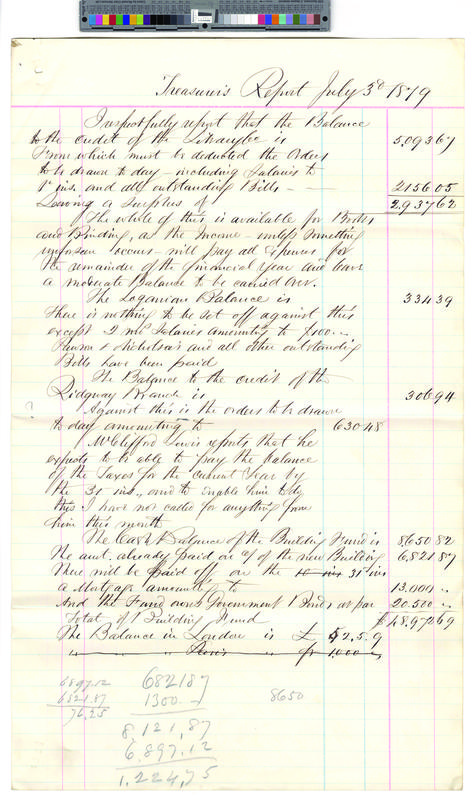 Treasurer's Report July 3d 1879
I respectfully report that the Balance
to the credit of the Library Co is 5.093 67
From which must be deducted the Orders
to be drawn to day - including Salaries to
1st ins. and all outstanding Bills - - 2156 05
Leaving a Surplus of 2.937 62
The whole of this is available for Books
and Binding, as the Income - unless something
unforseen occurs - will pay all Expenses for
the remainder of the financial year and leave
a moderate Balance to be carried over.
The Loganian Balance is 334 39
There is nothing to be set off against this
except 2 mos Salaries amounting to $100 ..
Pawson & Nicholson's and all other outstanding
Bills have been paid
The Balance to the credit of the
Ridgway Branch is 306 94
Against this is the orders to be drawn
to day amounting to 630.48
Mr Clifford Lewis reports that he
expects to be able to pay the Balance
of the Taxes for the current Year by
the 31 ins., and to enable him to do
this I have not called for anything from
him this month
The Cash Balance of the Building Fund is 8.650 82
The amt. already paid on a/c of the new Building 6.821 87
There will be paid off on the 10 ins 31st ins
a Mortgage amounting to 13.000 ..
And the Fund owns Government Bonds at par 20.500 ..
Total of Building Fund $48.972 69
The Balance in London is £ 52.5.9
" " " Paris " fr 1000 ..
6897.12
6821.87
76,25
682187
1300 -
8,121,87
6.897.12
1.224,75
8650